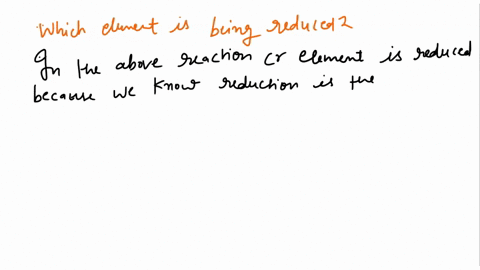 Which element is being reduced?
In the above reaction Cr element is reduced
because we know reduction is the